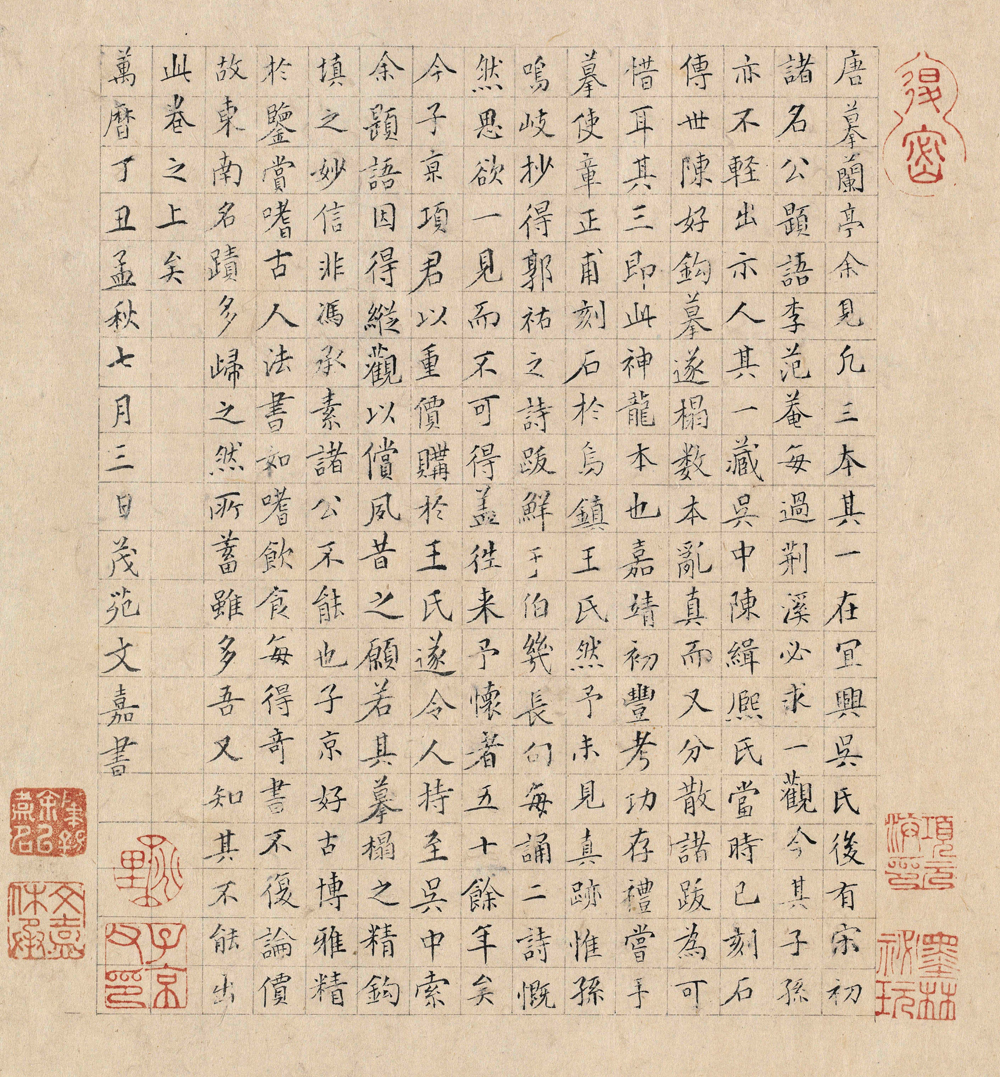 退密
項元汴印
墨林祕玩
唐摹蘭亭余見凢三本其一在宜興吳氏後有宋初
諸名公題語李范菴每過荆溪必求一觀今其子孫
亦不輕出示人其一藏吳中陳緝熙氏當時已刻石
傳世陳好鈎摹遂榻数本亂真而又分散諸跋為可
惜耳其三即此神龍本也嘉靖初豐考功存禮嘗手
摹使章正甫刻石於烏鎮王氏然予未見真跡惟孫
鳴岐抄得郭祐之詩跋鮮于伯幾長句每誦二詩慨
然思欲一見而不可得盖徃来予懷者五十餘年矣
今子京項君以重價購於王氏遂令人持至吳中索
余題語因得縱觀以償夙昔之願若其摹榻之精鈎
填之妙信非馮承素諸公不能也子京好古博雅精
於鑒賞嗜古人法書如嗜飲食每得竒書不復論價
故東南名蹟多歸之然所蓄雖多吾又知其不能出
此卷之上矣
萬曆丁丑孟秋七月三日茂苑文嘉書
子京父印
肇錫余以嘉名
文嘉休承